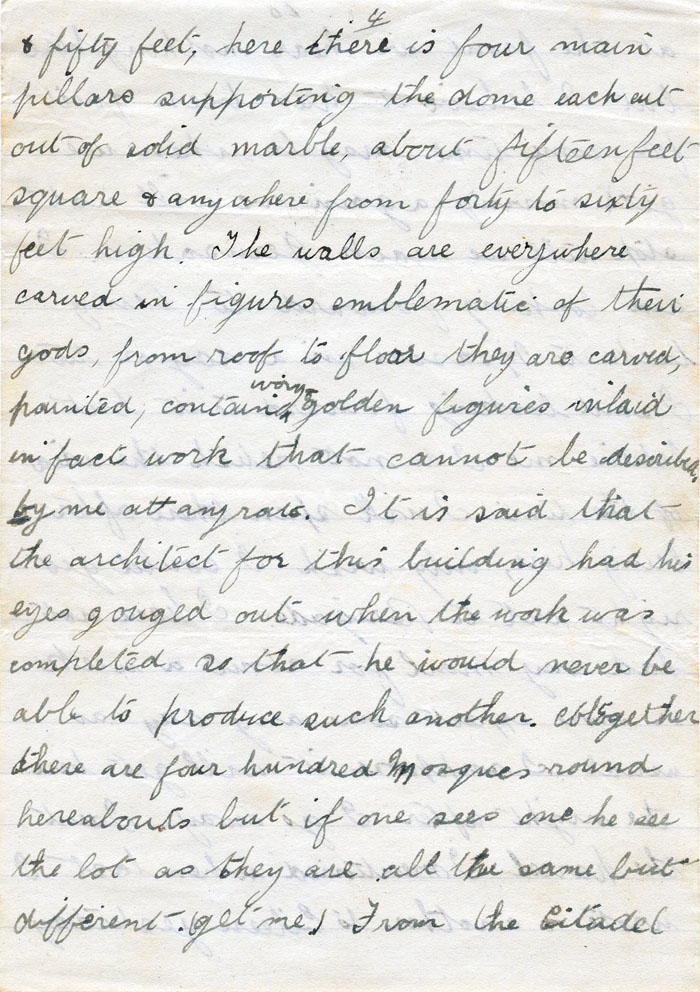 4
& fifty feet, here there is four main
pillars supporting the dome each cut
out of solid marble, about fifteen feet
square & anywhere from forty to sixty
feet high. The walls are everywhere
carved in figures emblematic of their
gods, from roof to floor they are carved,
painted, contain ivory & golden figures inlaid
in fact work that cannot be described,
by me at anyrate. It is said that
the architect for this building had his
eyes gouged out when the work was
completed so that he would never be
able to produce such another. Altogether
there are four hundred Mosques round
hereabouts but if one sees one he see
the lot as they are all the same but
different. (get me) From the Citadel